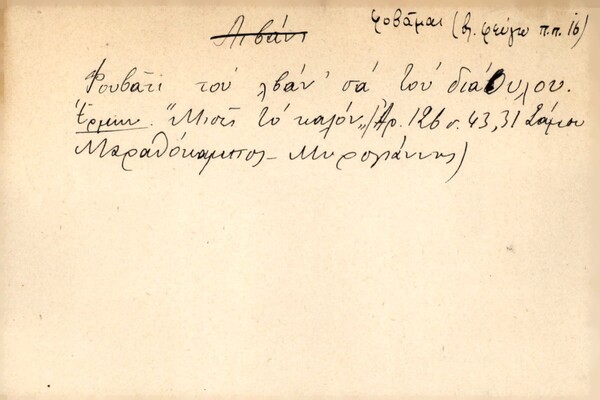 Λιβάνι
φοβᾶμαι (βλ. φεύγω π.π. 16)
Φουβᾶτι τοὐ λβάν' σά τοὐ διάουλου.
Ἑρμην. "Μισεῖ τό καλόν"/(Ἀρ. 126 σ. 43, 31 Σάμου
Μαραθόκαμπος - Μυρογιάννης)